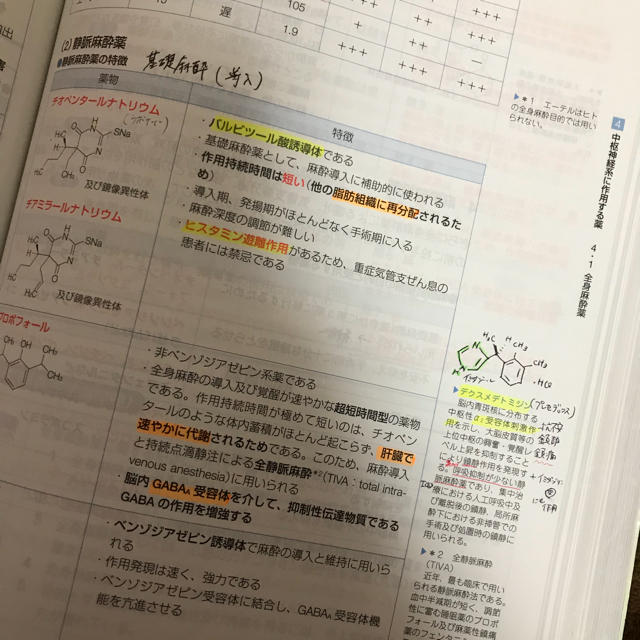 遅
105
1.9
+++
+++
+++
+++
++
++
++
—
+++
+++
(2) 静脈麻酔薬
●静脈麻酔薬の特徴
基礎麻酔(導入)
薬物
特徴
チオペンタールナトリウム
(ラボナール)
SNa
及び鏡像異性体
・バルビツール酸誘導体である
・基礎麻酔薬として、麻酔導入に補助的に使われる
・作用持続時間は短い(他の脂肪組織に再分配されるた
め)
・導入期、発揚期がほとんどなく手術期に入る
・麻酔深度の調節が難しい
・ヒスタミン遊離作用があるため、重症気管支ぜん息の
患者には禁忌である
チアミラールナトリウム
SNa
及び鏡像異性体
プロポフォール
・非ベンゾジアゼピン系薬である
・全身麻酔の導入及び覚醒が速やかな超短時間型の薬物
である。作用持続時間が極めて短いのは、チオペン
タールのような体内蓄積がほとんど起こらず、肝臓で
速やかに代謝されるためである。このため、麻酔導入
と持続点滴静注による全静脈麻酔*2(TIVA:total intra-
venous anesthesia)に用いられる
・脳内 GABAA 受容体を介して、抑制性伝達物質である
GABA の作用を増強する
・ベンゾジアゼピン誘導体で麻酔の導入と維持に用いら
れる
・作用発現は速く、強力である
・ベンゾジアゼピン受容体に結合し、GABAA 受容体機
能を亢進させる
▶*1 エーテルはヒト
の全身麻酔目的では用い
られない。
4
中枢神経系に作用する薬
4・1 全身麻酔薬
H3C
H
CH3
CH3
・HCl
▶デクスメデトミジン
(プレセデックス)
脳内青斑核に分布する
中枢性α2受容体刺激作
用を示し、大脳皮質等の
上位中枢の興奮・覚醒レ
ベル上昇を抑制すること
により鎮静作用を発現す
る。呼吸抑制が少ない静
脈麻酔薬であり、集中治
療における人工呼吸中及
び離脱後の鎮静、局所麻
酔下における非挿管での
手術及び処置時の鎮静に
用いられる。
鎮静
鎮痛
にも
作用
▶*2 全静脈麻酔
(TIVA)
近年、最も臨床で用い
られる静脈麻酔法である。
血中半減期が短く、調節
性に富む睡眠薬のプロポ
フォール及び麻薬性鎮痛
薬のフェンタ